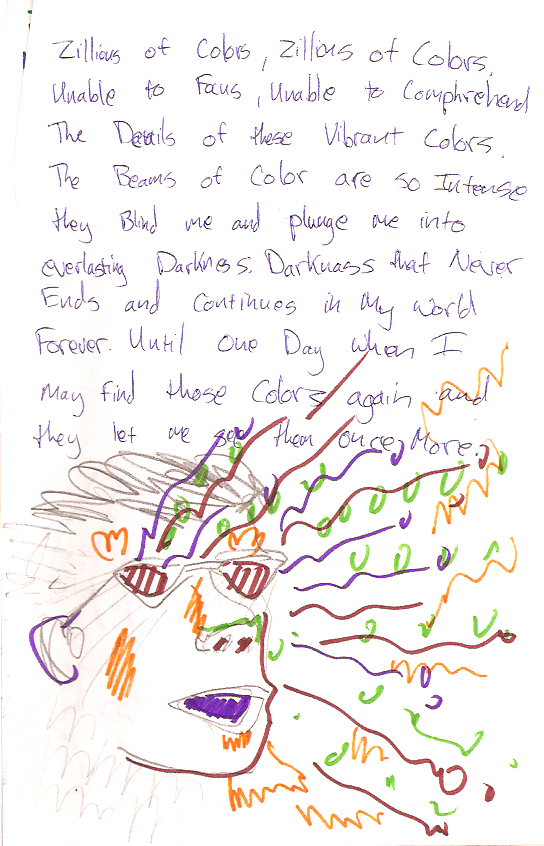 Zillions of Colors, Zillions of Colors.
Unable to Focus, Unable to Comphrehend
The Details of these Vibrant Colors.
The Beams of Color are so Intense
they Blind me and plunge me into
everlasting Darkness. Darknass that Never
Ends and Continues in My World
Forever. Until One Day When I
May find those Colors again and
they let me see them once More.